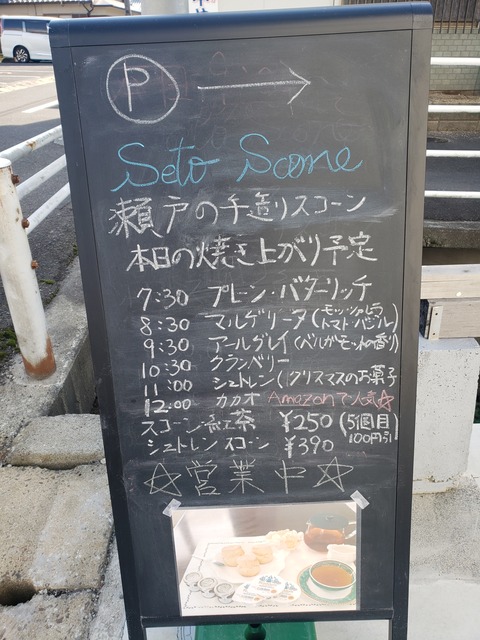 P →
Seto Scone
瀬戸の手造りスコーン
本日の焼き上がり予定
7:30 プレーン・バターリッチ
8:30 マルゲリータ(モッツァレラ トマト・バジル)
9:30 アールグレイ(ベルガモットの香り)
10:30 クランベリー
11:00 シュトレン(クリスマスのお菓子
12:00 カカオ Amazonで人気☆
スコーン・紅茶 ¥250 (5個目 100円引)
シュトレンスコーン ¥390
☆営業中☆